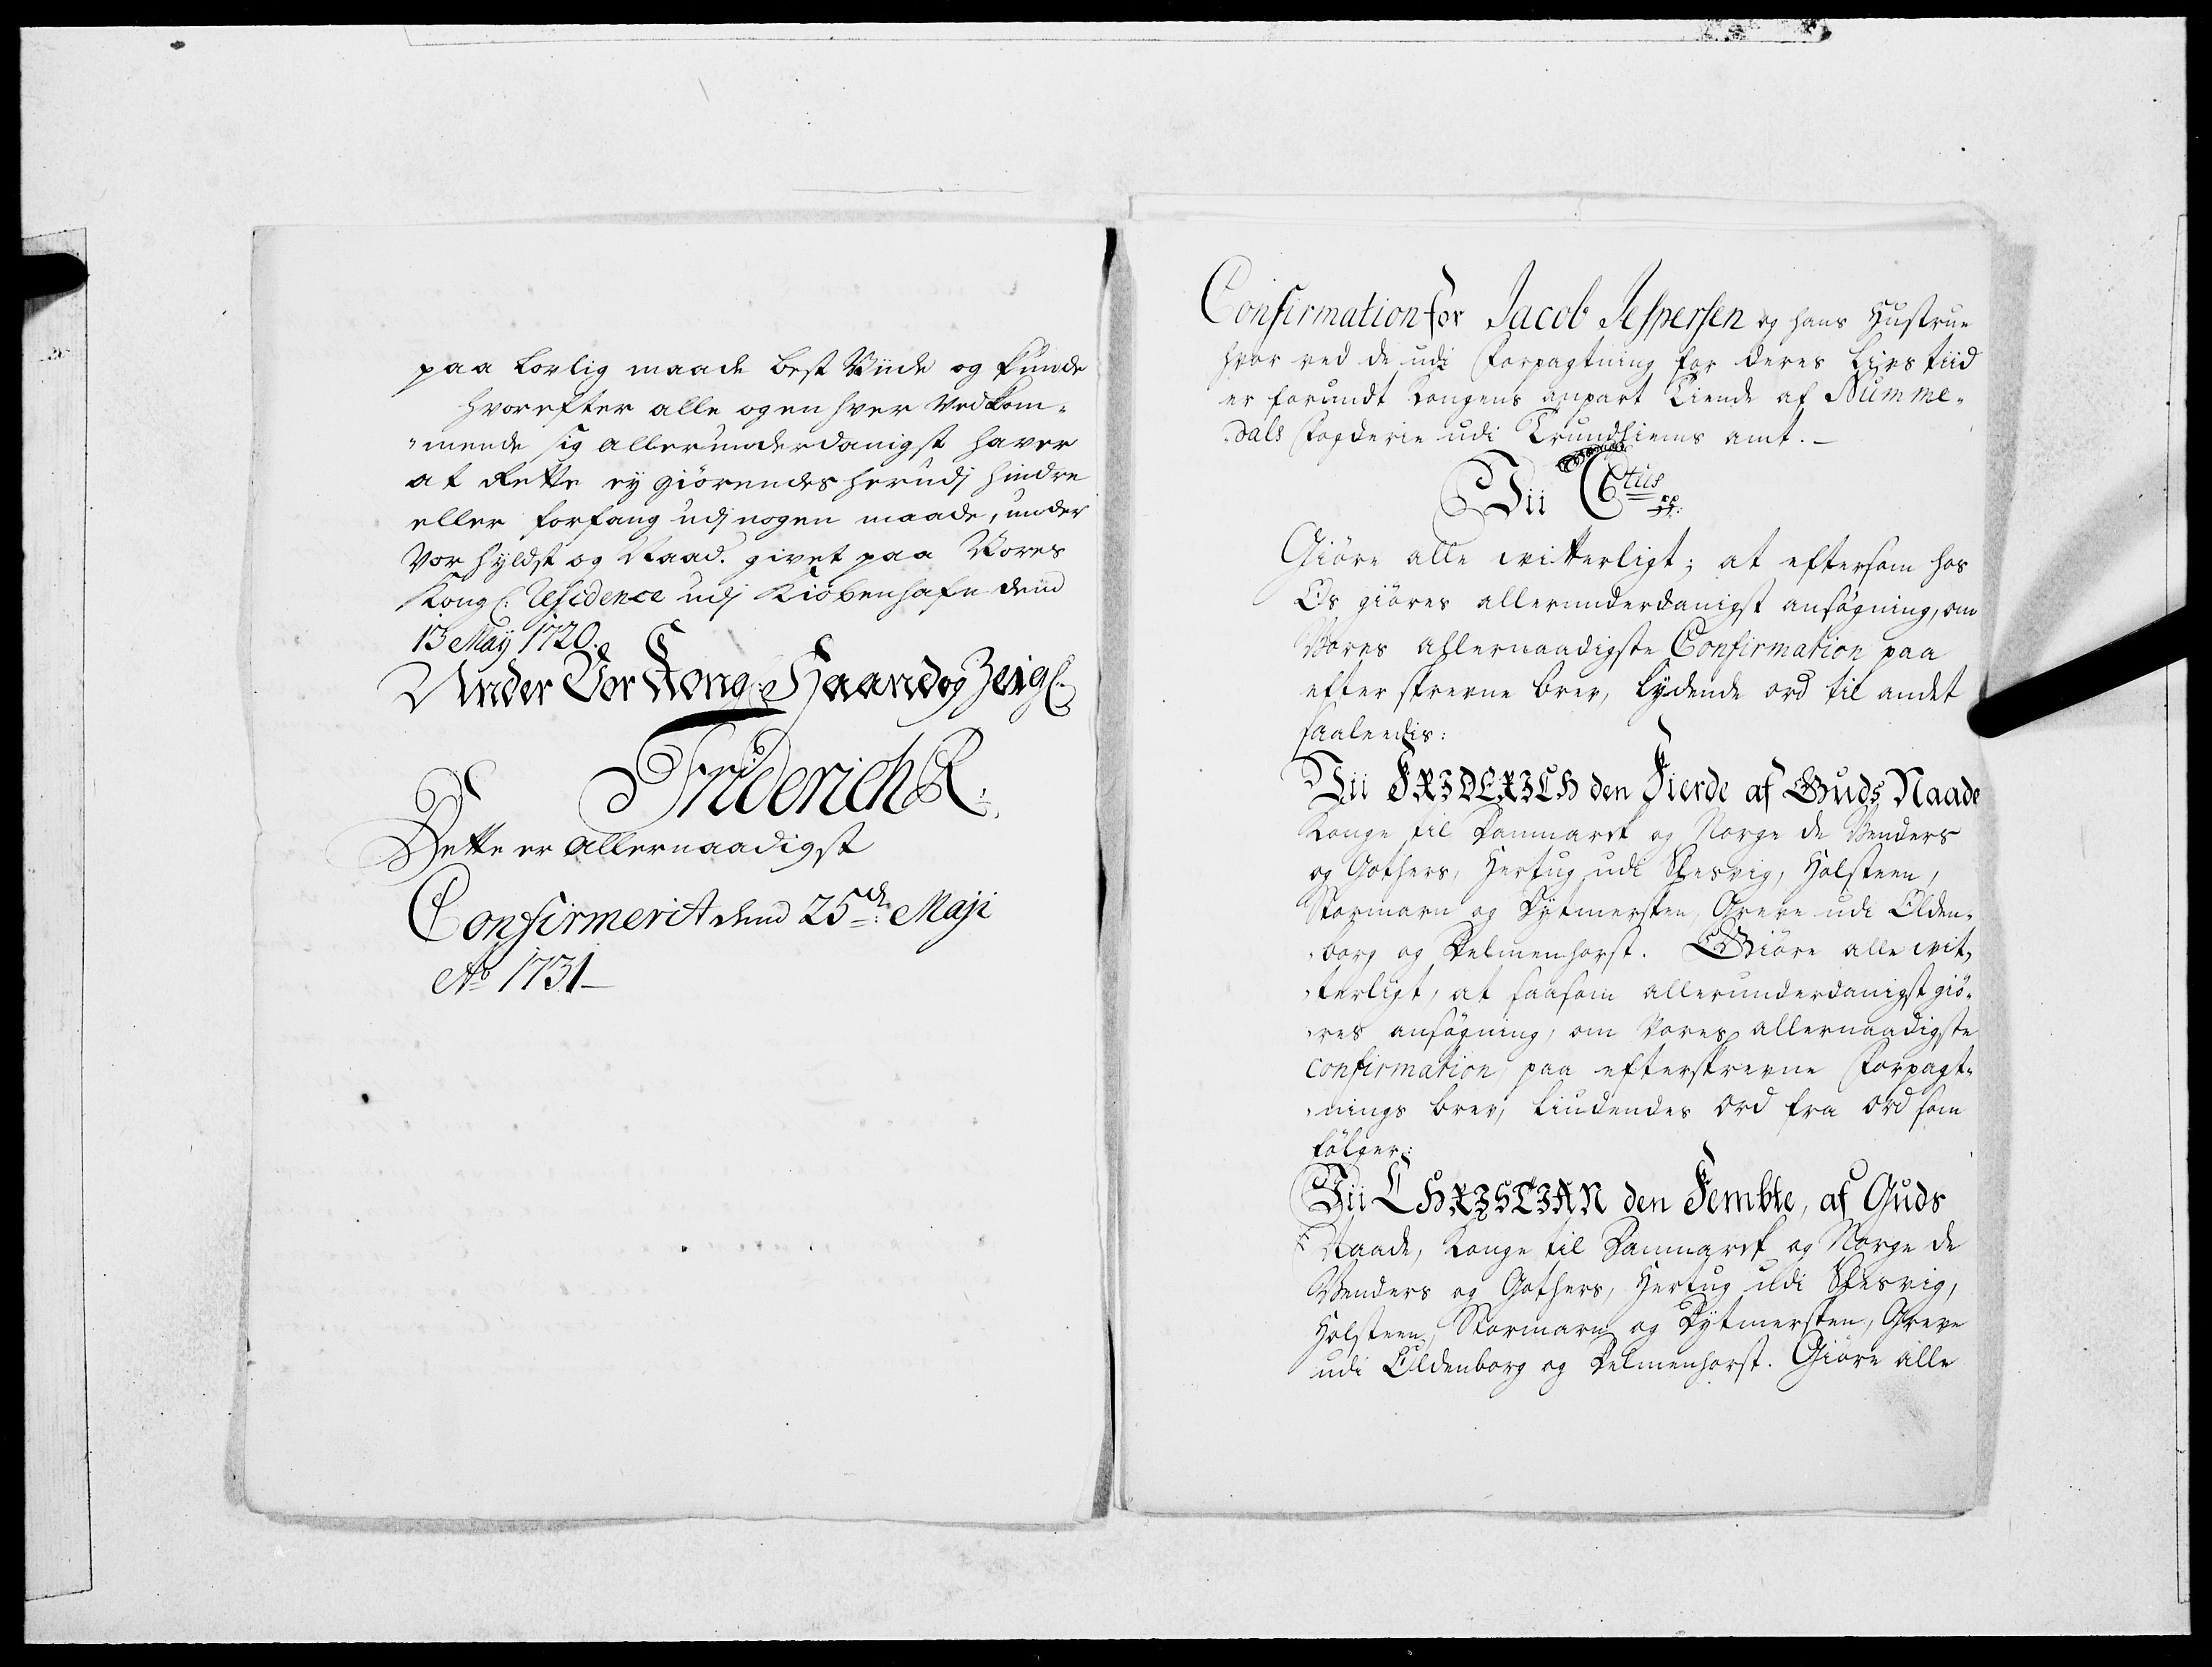 paa lovlig maade best Viide og kunde
hvorefter alle og en hver Vedkom-
-mende sig allerunderdanigst haver
at Rette ey giørendes herudj hindre
eller forfang udj nogen maade, under
Vor hyldst og Naad. givet paa Vores
Kongl: Residence udj Kiøbenhafn dend
13 Maÿ 1720.
Under Vor Kongl: Haand og Zeigl:
Friderich R:
Dette er allernaadigst
Confirmerit dend 25de: Maji
Ao 1731
Confirmation for Jacob Jespersen og hans Hustrue
hvor ved de udi Forpagtning for deres Lives tiid
er forundt Kongens anpart Tiende af Numme-
-dals Fogderie udi Trundhiems amt.
Vii C6tus
pp:
Giöre alle vitterligt; at eftersom hos
Os giöres allerunderdanigst ansögning, om
Vores allernaadigste Confirmation paa
efter skrevne brev, lÿdende ord til andet
saaleedis:
Vii FRIDERICH den Fierde af Guds Naade
Konge til Danmarck og Norge de Venders
og Gothers, Hertug udi Slesvig, Holsteen,
Stormarn og Dÿtmersken, Greve udi Olden-
-borg og Delmenhorst. Giöre alle vit-
-terligt, at saasom allerunderdanigst giö-
-res ansögning, om Vores allernaadigste
confirmation paa efterskrevne Forpagt-
-nings brev, liudendes Ord fra Ord som
fölger:
Vii CHRISTIAN den Fembte, af Guds
Naade, Konge til Danmarck og Norge de
Venders og Gothers, Hertug udi Slesvig,
Holsteen, Stormarn og Dÿtmersken, Greve
udi Oldenborg og Delmenhorst. Giöre alle